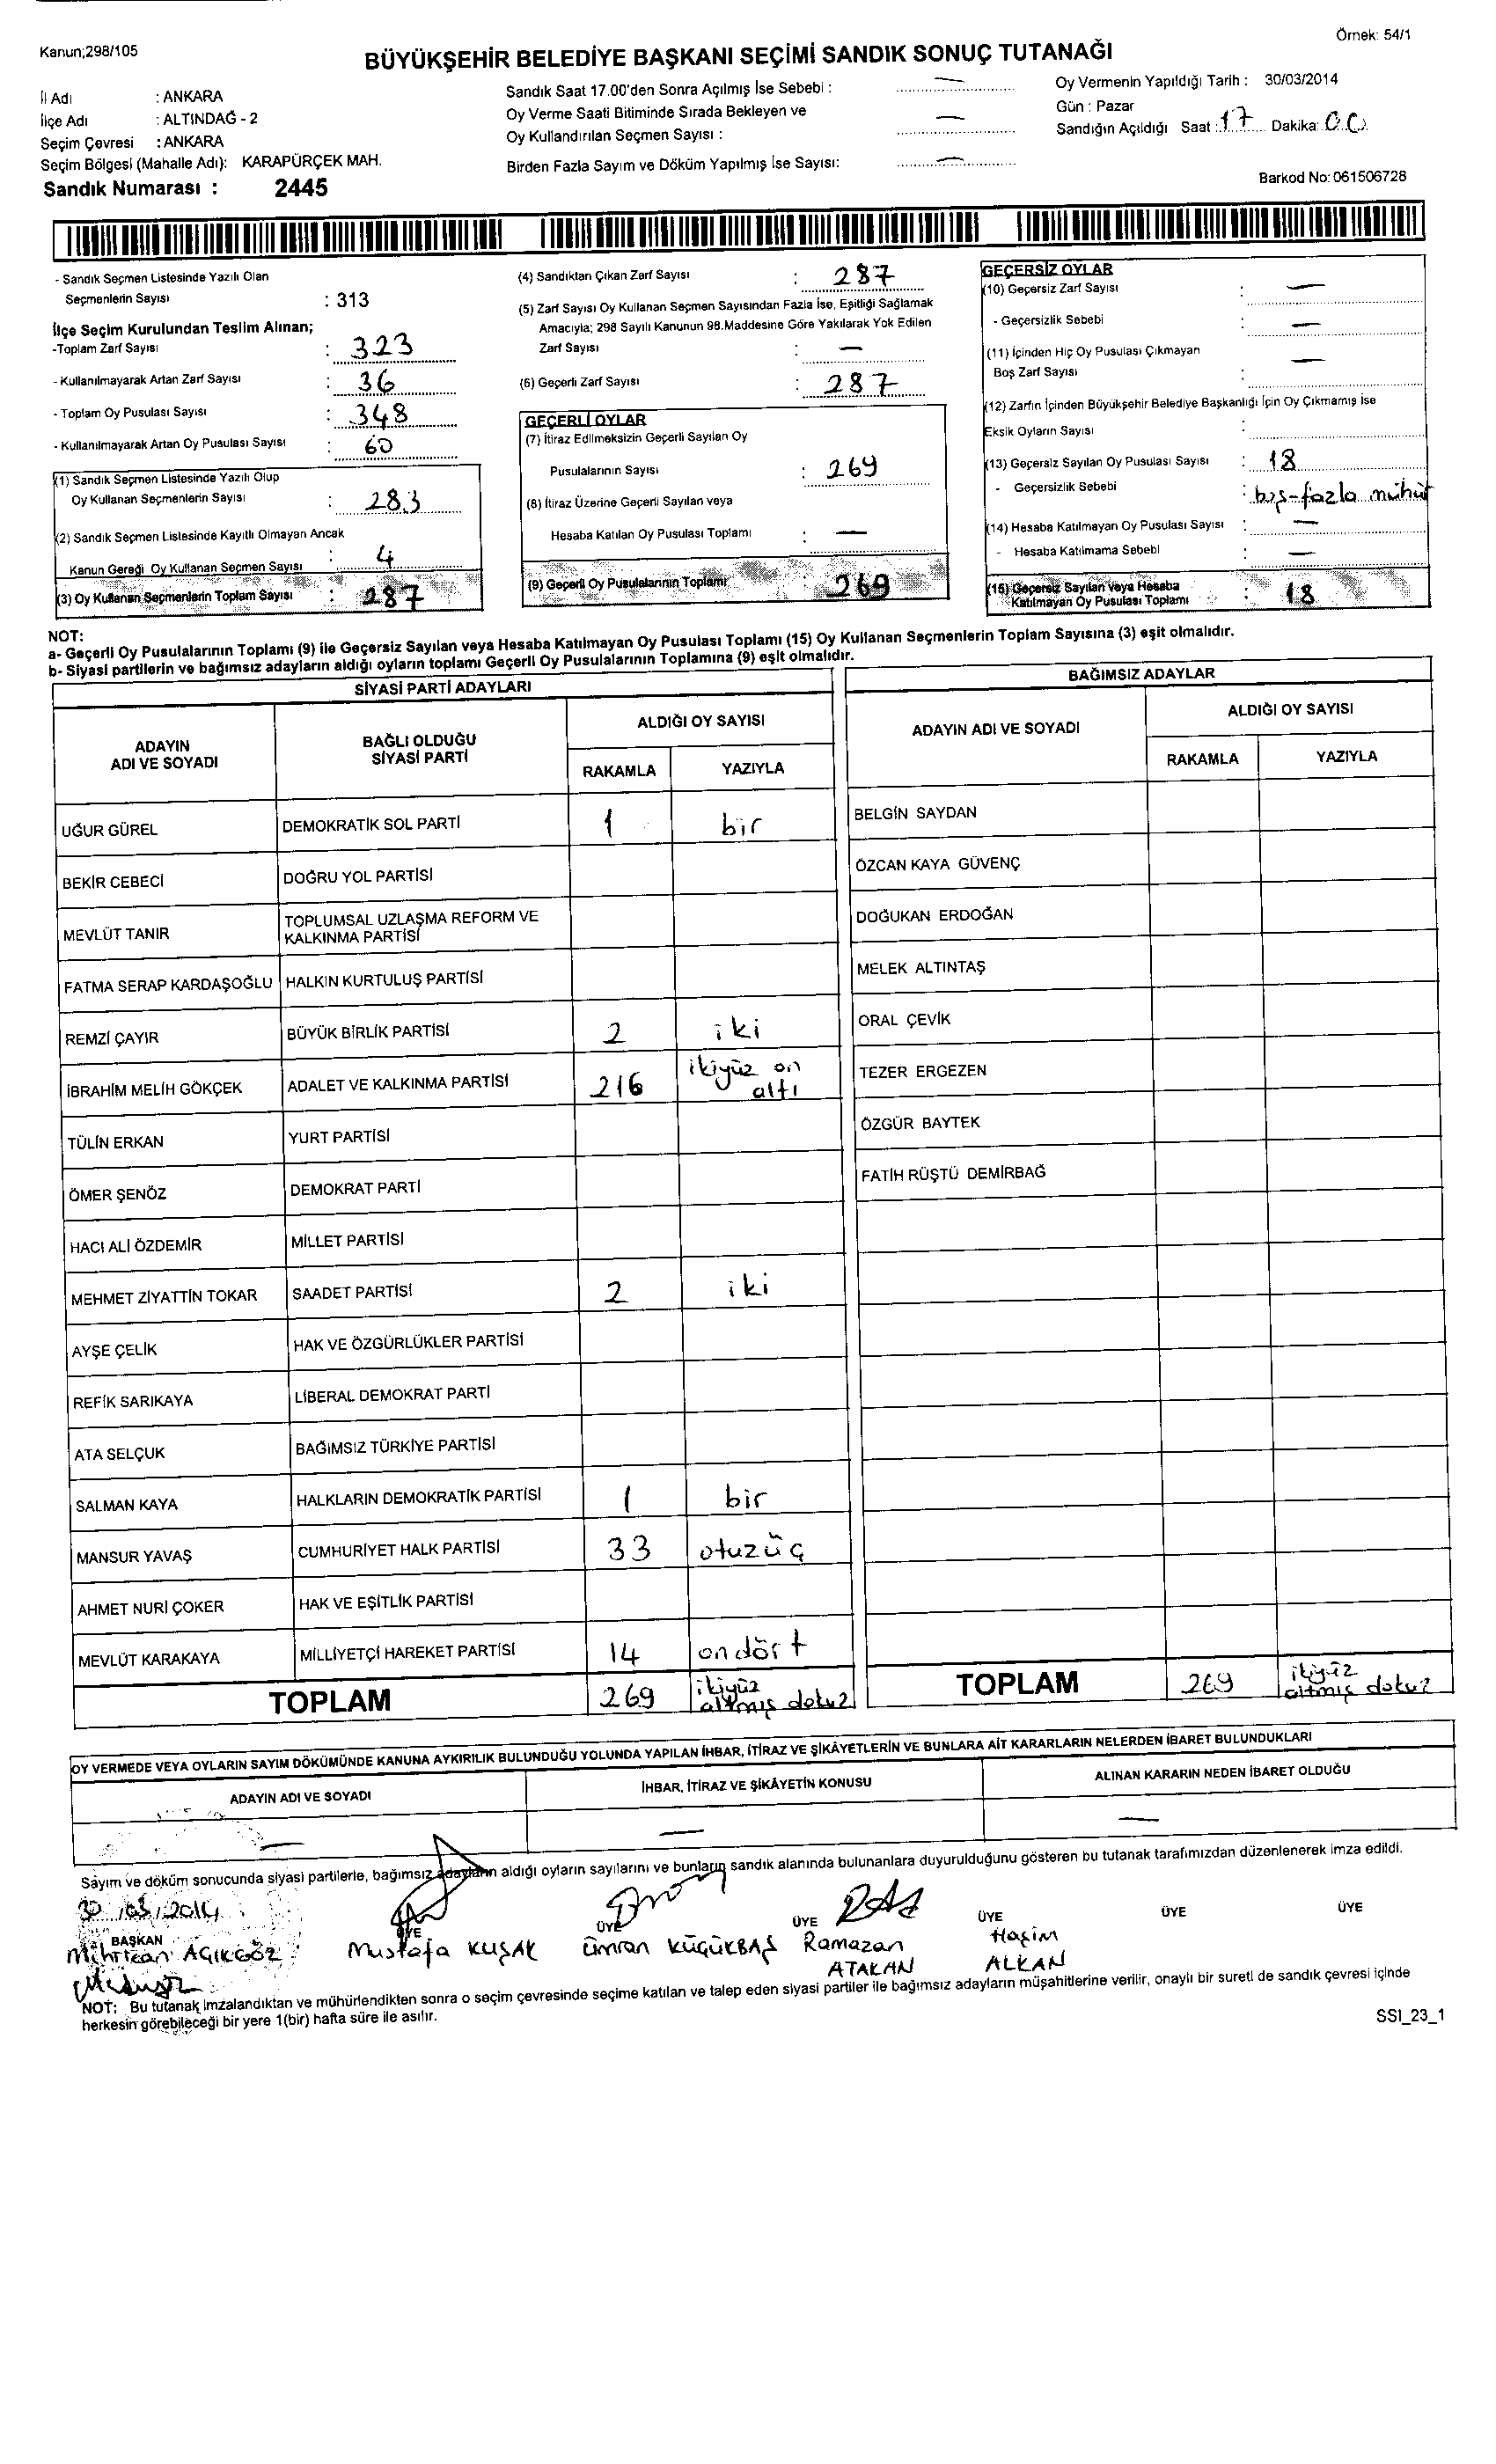 Kanun;298/105
Örnek: 54/1
BÜYÜKŞEHİR BELEDİYE BAŞKANI SEÇİMİ SANDIK SONUÇ TUTANAĞI
İl Adı : ANKARA
İlçe Adı : ALTINDAĞ - 2
Seçim Çevresi : ANKARA
Seçim Bölgesi (Mahalle Adı): KARAPÜRÇEK MAH.
Sandık Numarası : 2445
Sandık Saat 17.00'den Sonra Açılmış İse Sebebi : —
Oy Verme Saati Bitiminde Sırada Bekleyen ve
Oy Kullandırılan Seçmen Sayısı : —
Birden Fazla Sayım ve Döküm Yapılmış İse Sayısı: —
Oy Vermenin Yapıldığı Tarih : 30/03/2014
Gün : Pazar
Sandığın Açıldığı Saat : 17 Dakika: 00
Barkod No: 061506728
- Sandık Seçmen Listesinde Yazılı Olan
Seçmenlerin Sayısı : 313
İlçe Seçim Kurulundan Teslim Alınan;
-Toplam Zarf Sayısı : 323
- Kullanılmayarak Artan Zarf Sayısı : 36
- Toplam Oy Pusulası Sayısı : 348
- Kullanılmayarak Artan Oy Pusulası Sayısı : 60
(1) Sandık Seçmen Listesinde Yazılı Olup
Oy Kullanan Seçmenlerin Sayısı : 283
(2) Sandık Seçmen Listesinde Kayıtlı Olmayan Ancak
Kanun Gereği Oy Kullanan Seçmen Sayısı : 4
(3) Oy Kullanan Seçmenlerin Toplam Sayısı : 287
(4) Sandıktan Çıkan Zarf Sayısı : 287
(5) Zarf Sayısı Oy Kullanan Seçmen Sayısından Fazla İse, Eşitliği Sağlamak
Amacıyla; 298 Sayılı Kanunun 98.Maddesine Göre Yakılarak Yok Edilen
Zarf Sayısı : —
(6) Geçerli Zarf Sayısı : 287
GEÇERLİ OYLAR
(7) İtiraz Edilmeksizin Geçerli Sayılan Oy
Pusulalarının Sayısı : 269
(8) İtiraz Üzerine Geçerli Sayılan veya
Hesaba Katılan Oy Pusulası Toplamı : —
(9) Geçerli Oy Pusulalarının Toplamı : 269
GEÇERSİZ OYLAR
(10) Geçersiz Zarf Sayısı : —
- Geçersizlik Sebebi : —
(11) İçinden Hiç Oy Pusulası Çıkmayan
Boş Zarf Sayısı : —
(12) Zarfın İçinden Büyükşehir Belediye Başkanlığı İçin Oy Çıkmamış ise
Eksik Oyların Sayısı :
(13) Geçersiz Sayılan Oy Pusulası Sayısı : 18
- Geçersizlik Sebebi : boş-fazla mühür
(14) Hesaba Katılmayan Oy Pusulası Sayısı : —
- Hesaba Katılmama Sebebi : —
(15) Geçersiz Sayılan Veya Hesaba
Katılmayan Oy Pusulası Toplamı : 18
NOT:
a- Geçerli Oy Pusulalarının Toplamı (9) ile Geçersiz Sayılan veya Hesaba Katılmayan Oy Pusulası Toplamı (15) Oy Kullanan Seçmenlerin Toplam Sayısına (3) eşit olmalıdır.
b- Siyasi partilerin ve bağımsız adayların aldığı oyların toplamı Geçerli Oy Pusulalarının Toplamına (9) eşit olmalıdır.
SİYASİ PARTİ ADAYLARI
ADAYIN ADI VE SOYADI BAĞLI OLDUĞU SİYASİ PARTİ ALDIĞI OY SAYISI
RAKAMLA YAZIYLA
UĞUR GÜREL DEMOKRATİK SOL PARTİ 1 bir
BEKİR CEBECİ DOĞRU YOL PARTİSİ
MEVLÜT TANIR TOPLUMSAL UZLAŞMA REFORM VE KALKINMA PARTİSİ
FATMA SERAP KARDAŞOĞLU HALKIN KURTULUŞ PARTİSİ
REMZİ ÇAYIR BÜYÜK BİRLİK PARTİSİ 2 iki
İBRAHİM MELİH GÖKÇEK ADALET VE KALKINMA PARTİSİ 216 ikiyüz on altı
TÜLİN ERKAN YURT PARTİSİ
ÖMER ŞENÖZ DEMOKRAT PARTİ
HACI ALİ ÖZDEMİR MİLLET PARTİSİ
MEHMET ZİYATTİN TOKAR SAADET PARTİSİ 2 iki
AYŞE ÇELİK HAK VE ÖZGÜRLÜKLER PARTİSİ
REFİK SARIKAYA LİBERAL DEMOKRAT PARTİ
ATA SELÇUK BAĞIMSIZ TÜRKİYE PARTİSİ
SALMAN KAYA HALKLARIN DEMOKRATİK PARTİSİ 1 bir
MANSUR YAVAŞ CUMHURİYET HALK PARTİSİ 33 otuzüç
AHMET NURİ ÇOKER HAK VE EŞİTLİK PARTİSİ
MEVLÜT KARAKAYA MİLLİYETÇİ HAREKET PARTİSİ 14 ondört
TOPLAM 269 ikiyüz altmış dokuz
BAĞIMSIZ ADAYLAR
ADAYIN ADI VE SOYADI ALDIĞI OY SAYISI
RAKAMLA YAZIYLA
BELGİN SAYDAN
ÖZCAN KAYA GÜVENÇ
DOĞUKAN ERDOĞAN
MELEK ALTINTAŞ
ORAL ÇEVİK
TEZER ERGEZEN
ÖZGÜR BAYTEK
FATİH RÜŞTÜ DEMİRBAĞ
TOPLAM 269 ikiyüz altmış dokuz
OY VERMEDE VEYA OYLARIN SAYIM DÖKÜMÜNDE KANUNA AYKIRILIK BULUNDUĞU YOLUNDA YAPILAN İHBAR, İTİRAZ VE ŞİKÂYETLERİN VE BUNLARA AİT KARARLARIN NELERDEN İBARET BULUNDUKLARI
ADAYIN ADI VE SOYADI İHBAR, İTİRAZ VE ŞİKÂYETİN KONUSU ALINAN KARARIN NEDEN İBARET OLDUĞU
— — —
Sayım ve döküm sonucunda siyasi partilerle, bağımsız adayların aldığı oyların sayılarını ve bunların sandık alanında bulunanlara duyurulduğunu gösteren bu tutanak tarafımızdan düzenlenerek imza edildi.
30/03/2014
BAŞKAN ÜYE ÜYE ÜYE ÜYE ÜYE ÜYE
AÇIKGÖZ Mustafa KUŞAK Ümran KÜÇÜKBAŞ Ramazan ATAKAN Haşim ALKAN
NOT: Bu tutanak imzalandıktan ve mühürlendikten sonra o seçim çevresinde seçime katılan ve talep eden siyasi partiler ile bağımsız adayların müşahitlerine verilir, onaylı bir sureti de sandık çevresi içinde
herkesin görebileceği bir yere 1(bir) hafta süre ile asılır.
SSI_23_1